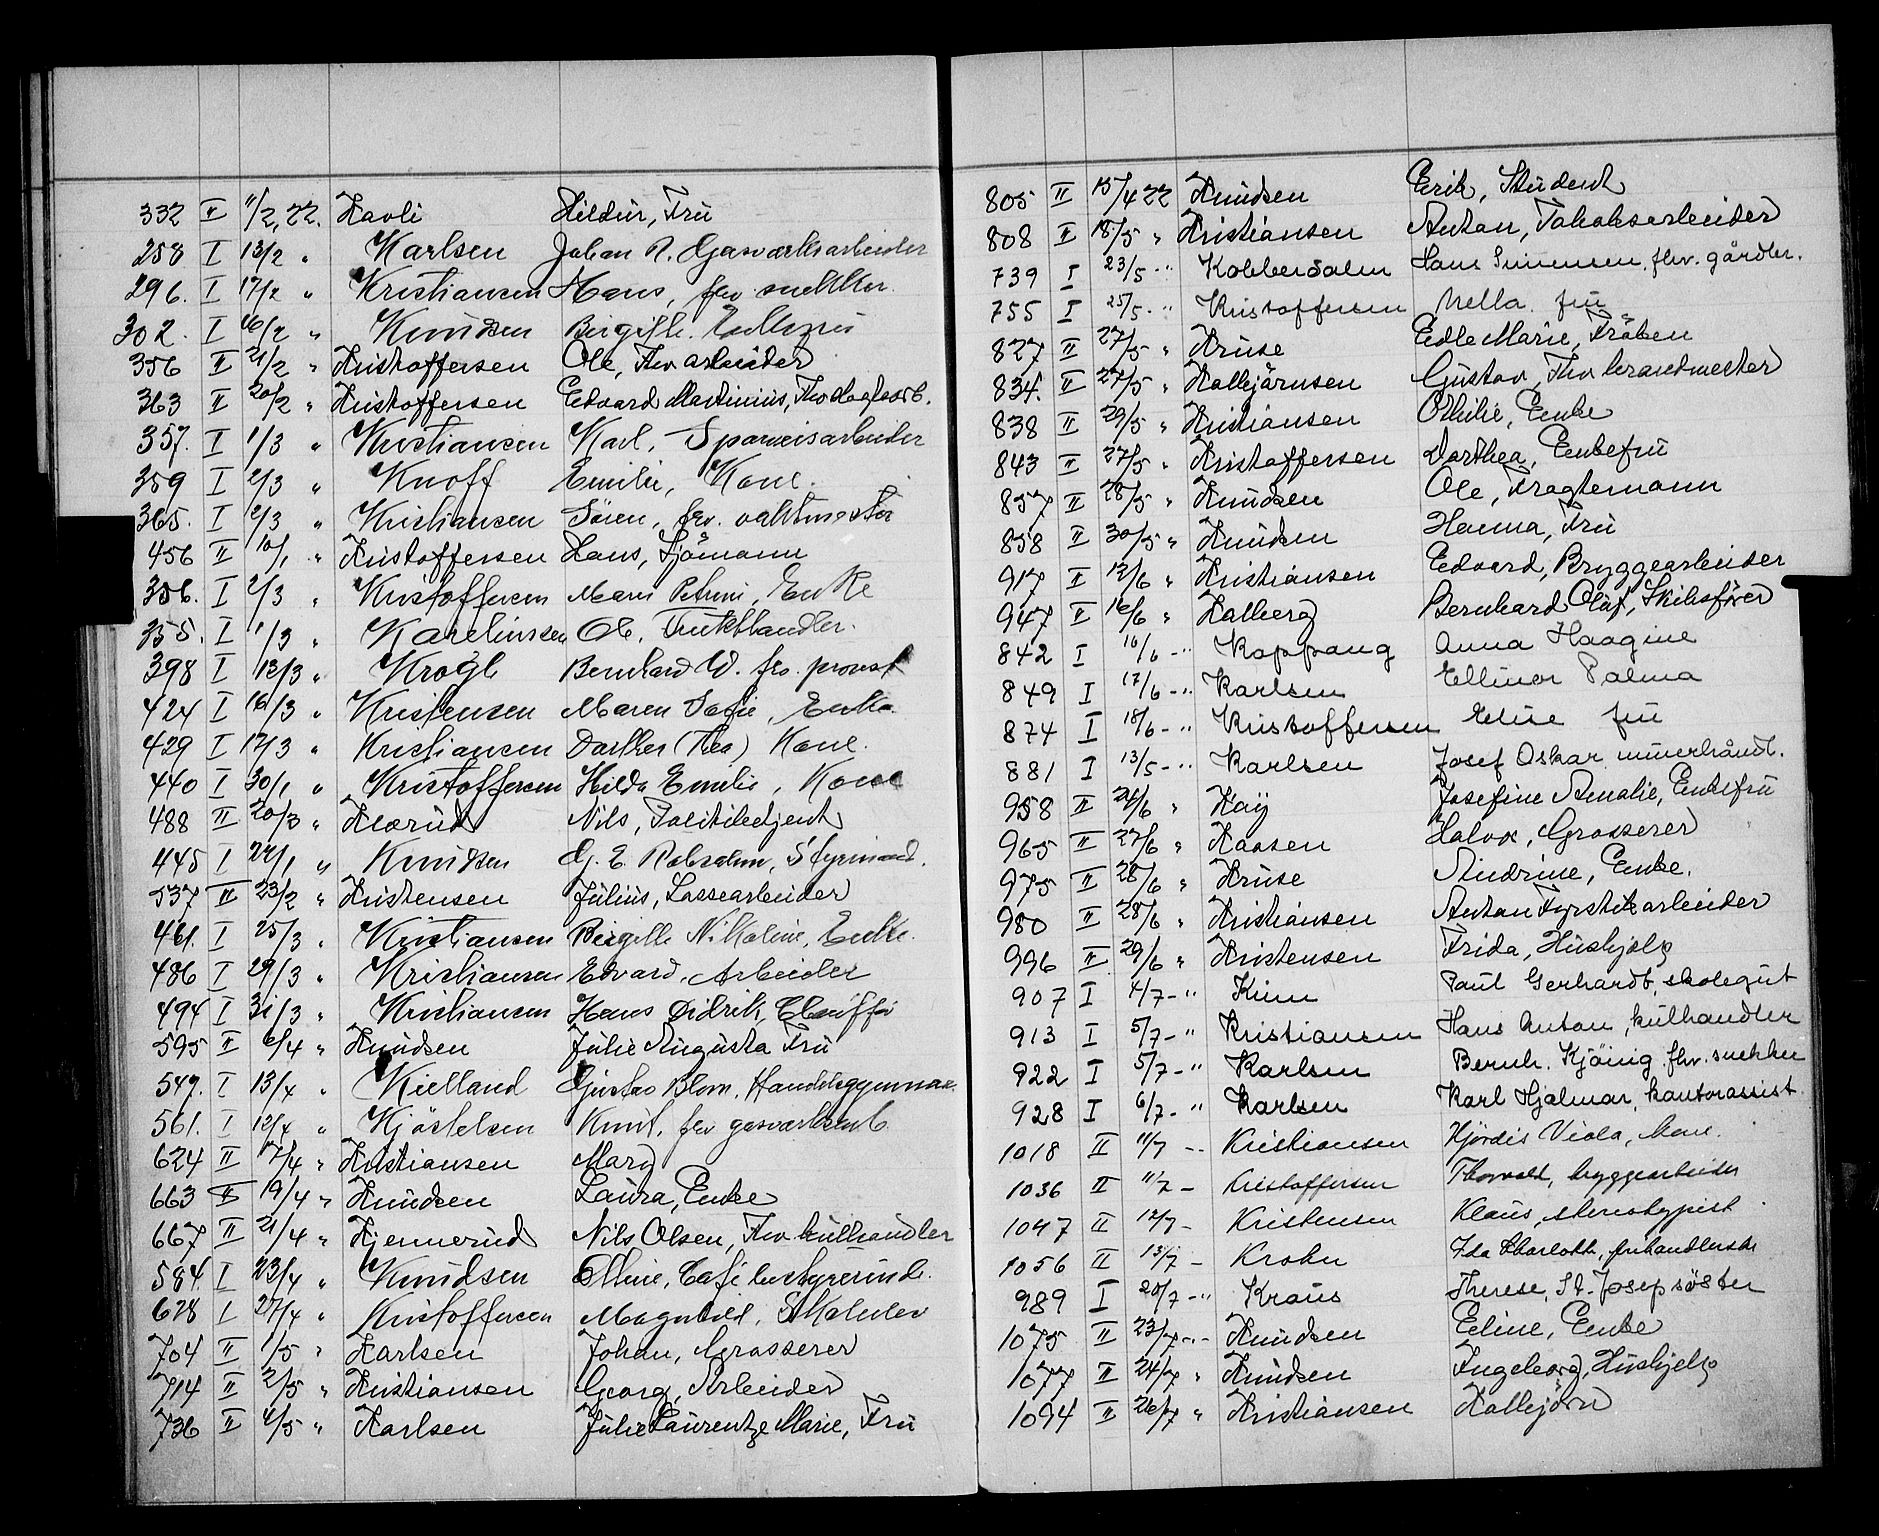 332 II 11/2, 22. Kavli Hildur, Fru
258 I 13/2 " Karlsen Johan A. Gasverksarbeider
296. I 17/2 " Kristiansen Hans, fhv. snekker
302. I 16/2 " Knudsen Birgitte. Enkefru
356 II 21/2 " Kristoffersen Ole, Fhv arbeider
363 II 20/2 " Kristoffersen Edvard Martinius, Fhv
357. I 1/3 " Kristiansen Karl, Sporveisarbeider
359 I 2/3 " Knoff Emilie, Kone.
365. I 2/3 " Kristiansen Sören, fhv. vaktmester
456 II 10/1 " Kristoffersen Hans, Sjömann
356. I 2/3 " Kristoffersen Maren Petrine, Enke
355. I 1/3 " Karelinssen Ole, Frukthandler.
398 I 13/3 " Krogh Bernhard W. fhv. provst
424 I 16/3 " Kristensen Maren Sofie, Enke.
429 I 17/3 " Kristiansen Dorthea (Thea) Kone.
440 I 30/1 " Kristoffersen Hilda Emilie, Kone
488 II 20/3 " Klörud Nils, Politibetjent
445 I 24/1 " Knudsen G. E. Robsahm, Styrmand.
537 II 23/2 " Kristensen Julius, Lossearbeider
461. I 25/3 " Kristiansen Birgitte Nikoline, Enke.
486 I 29/3 " Kristiansen Edvard, Arbeider
494 I 31/3 " Kristiansen Hans Didrik, Chaufför
595 II 6/4 " Knudsen Julie Augusta Fru
547. I 13/4 " Kielland Gustav Blom, Handelsgymnas.
561. I 12/4 " Kjöstelsen Knut, fhv gasverksarb.
624 II 17/4 " Kristiansen Marg
663 II 19/4 " Knudsen Laura, Enke
667 II 21/4 " Kjennerud Nils Olsen, Fhv kulhandler
584. I 23/4 " Knudsen Elline, Café bestyrerinde.
628 I 27/4 " Kristoffersen Magnhild,
704 II 1/5 " Karlsen Johan, Grosserer
714 II 2/5 " Kristiansen Georg, Arbeider
736 II 4/5 " Karlsen Julie Laurentze Marie, Fru
805 II 15/4 22 Knudsen Erik, Student
808 II 18/5 " Kristiansen Anton, Tobaksarbeider
739 I 23/5 -" Kobberdalen Hans Simensen, fhv. gårdbr.
755 I 25/5 -" Kristoffersen Nella. fru
827 II 27/5 " Kruse Edle Marie, Fröken
834. II 27/5 " Kallejärnsen Gustav, Fhv brandmester
838 II 29/5 " Kristiansen Othilie, Enke
843 II 27/5 " Kristoffersen Dorthea, Enkefru
857 II 28/5 " Knudsen Ole, Fragtemann
858 II 30/5 " Knudsen Hanna, Fru
917 II 12/6 " Kristiansen Edvard, Bryggearbeider
947 II 16/6 " Kalberg Bernhard Olaf, Skibsförer
842 I 16/6 -" Koppang Anna Haagine
849 I 17/6 -" Karlsen Ellinor Palma
874 I 18/6 -" Kristoffersen Elise fru
881 I 13/5 -" Karlsen Josef Oskar murerhåndt.
958 II 24/6 " Kay Josefine Amalie, Enkefru
965 II 27/6 " Kaasen Halvor, Grosserer
975 II 28/6 " Kruse Andrine, Enke.
980 II 28/6 " Kristiansen Anton Fyrstikarbeider
996 II 29/6 " Kristensen Frida, Hushjelp
907 I 4/7 -" Kim Paul Gerhardt, skolegut
913 I 5/7 -" Kristiansen Hans Anton, kulhandler
922 I 5/7 -" Karlsen Bernh. Kjönig fhv. snekker
928 I 6/7 -" Karlsen Karl Hjalmar, kontorassist.
1018 II 11/7 -- Kristiansen Hjördis Viola,
1036 II 11/7 - Kristoffersen Thorvald, bryggearbeider
1047 II 12/7 - Kristensen Klaus, stereotypist
1056 II 13/7 - Krohn Ida Charlotte, forhandlerske
989 I 20/7 -" Kraus Therese, St. Josepsöster
1075 II 23/7 -- Knudsen Eline, Enke
1077 II 24/7 " Knudsen Ingeborg, Hushjelp
1094 II 26/7 " Kristiansen Kallejörn